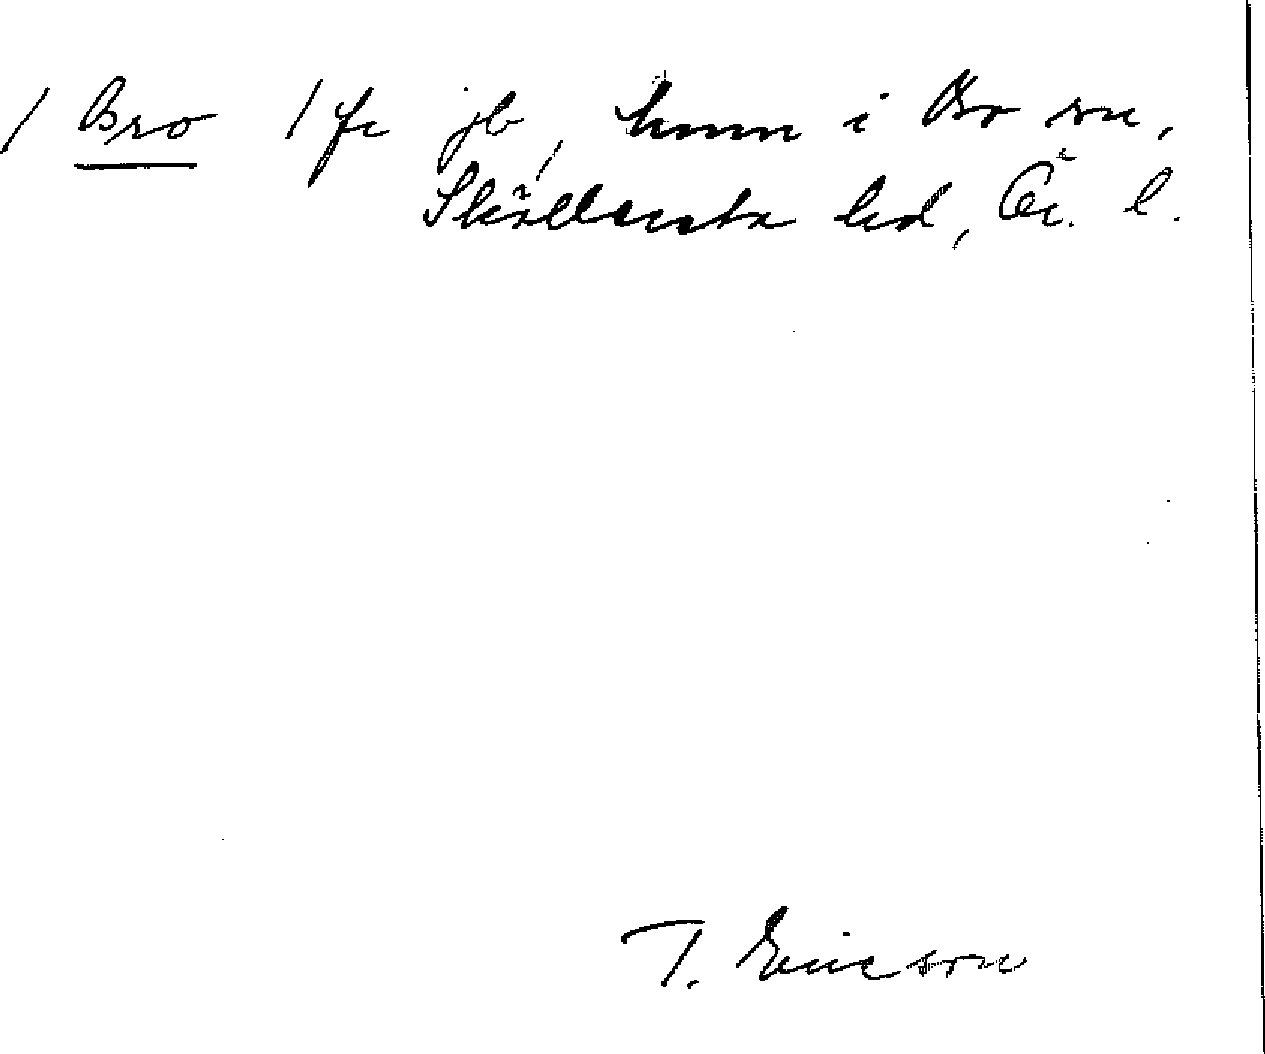 / Bro / fr jb, hmn i Bro sn,
Sköllersta hd, Ör. l.
T. Ericson